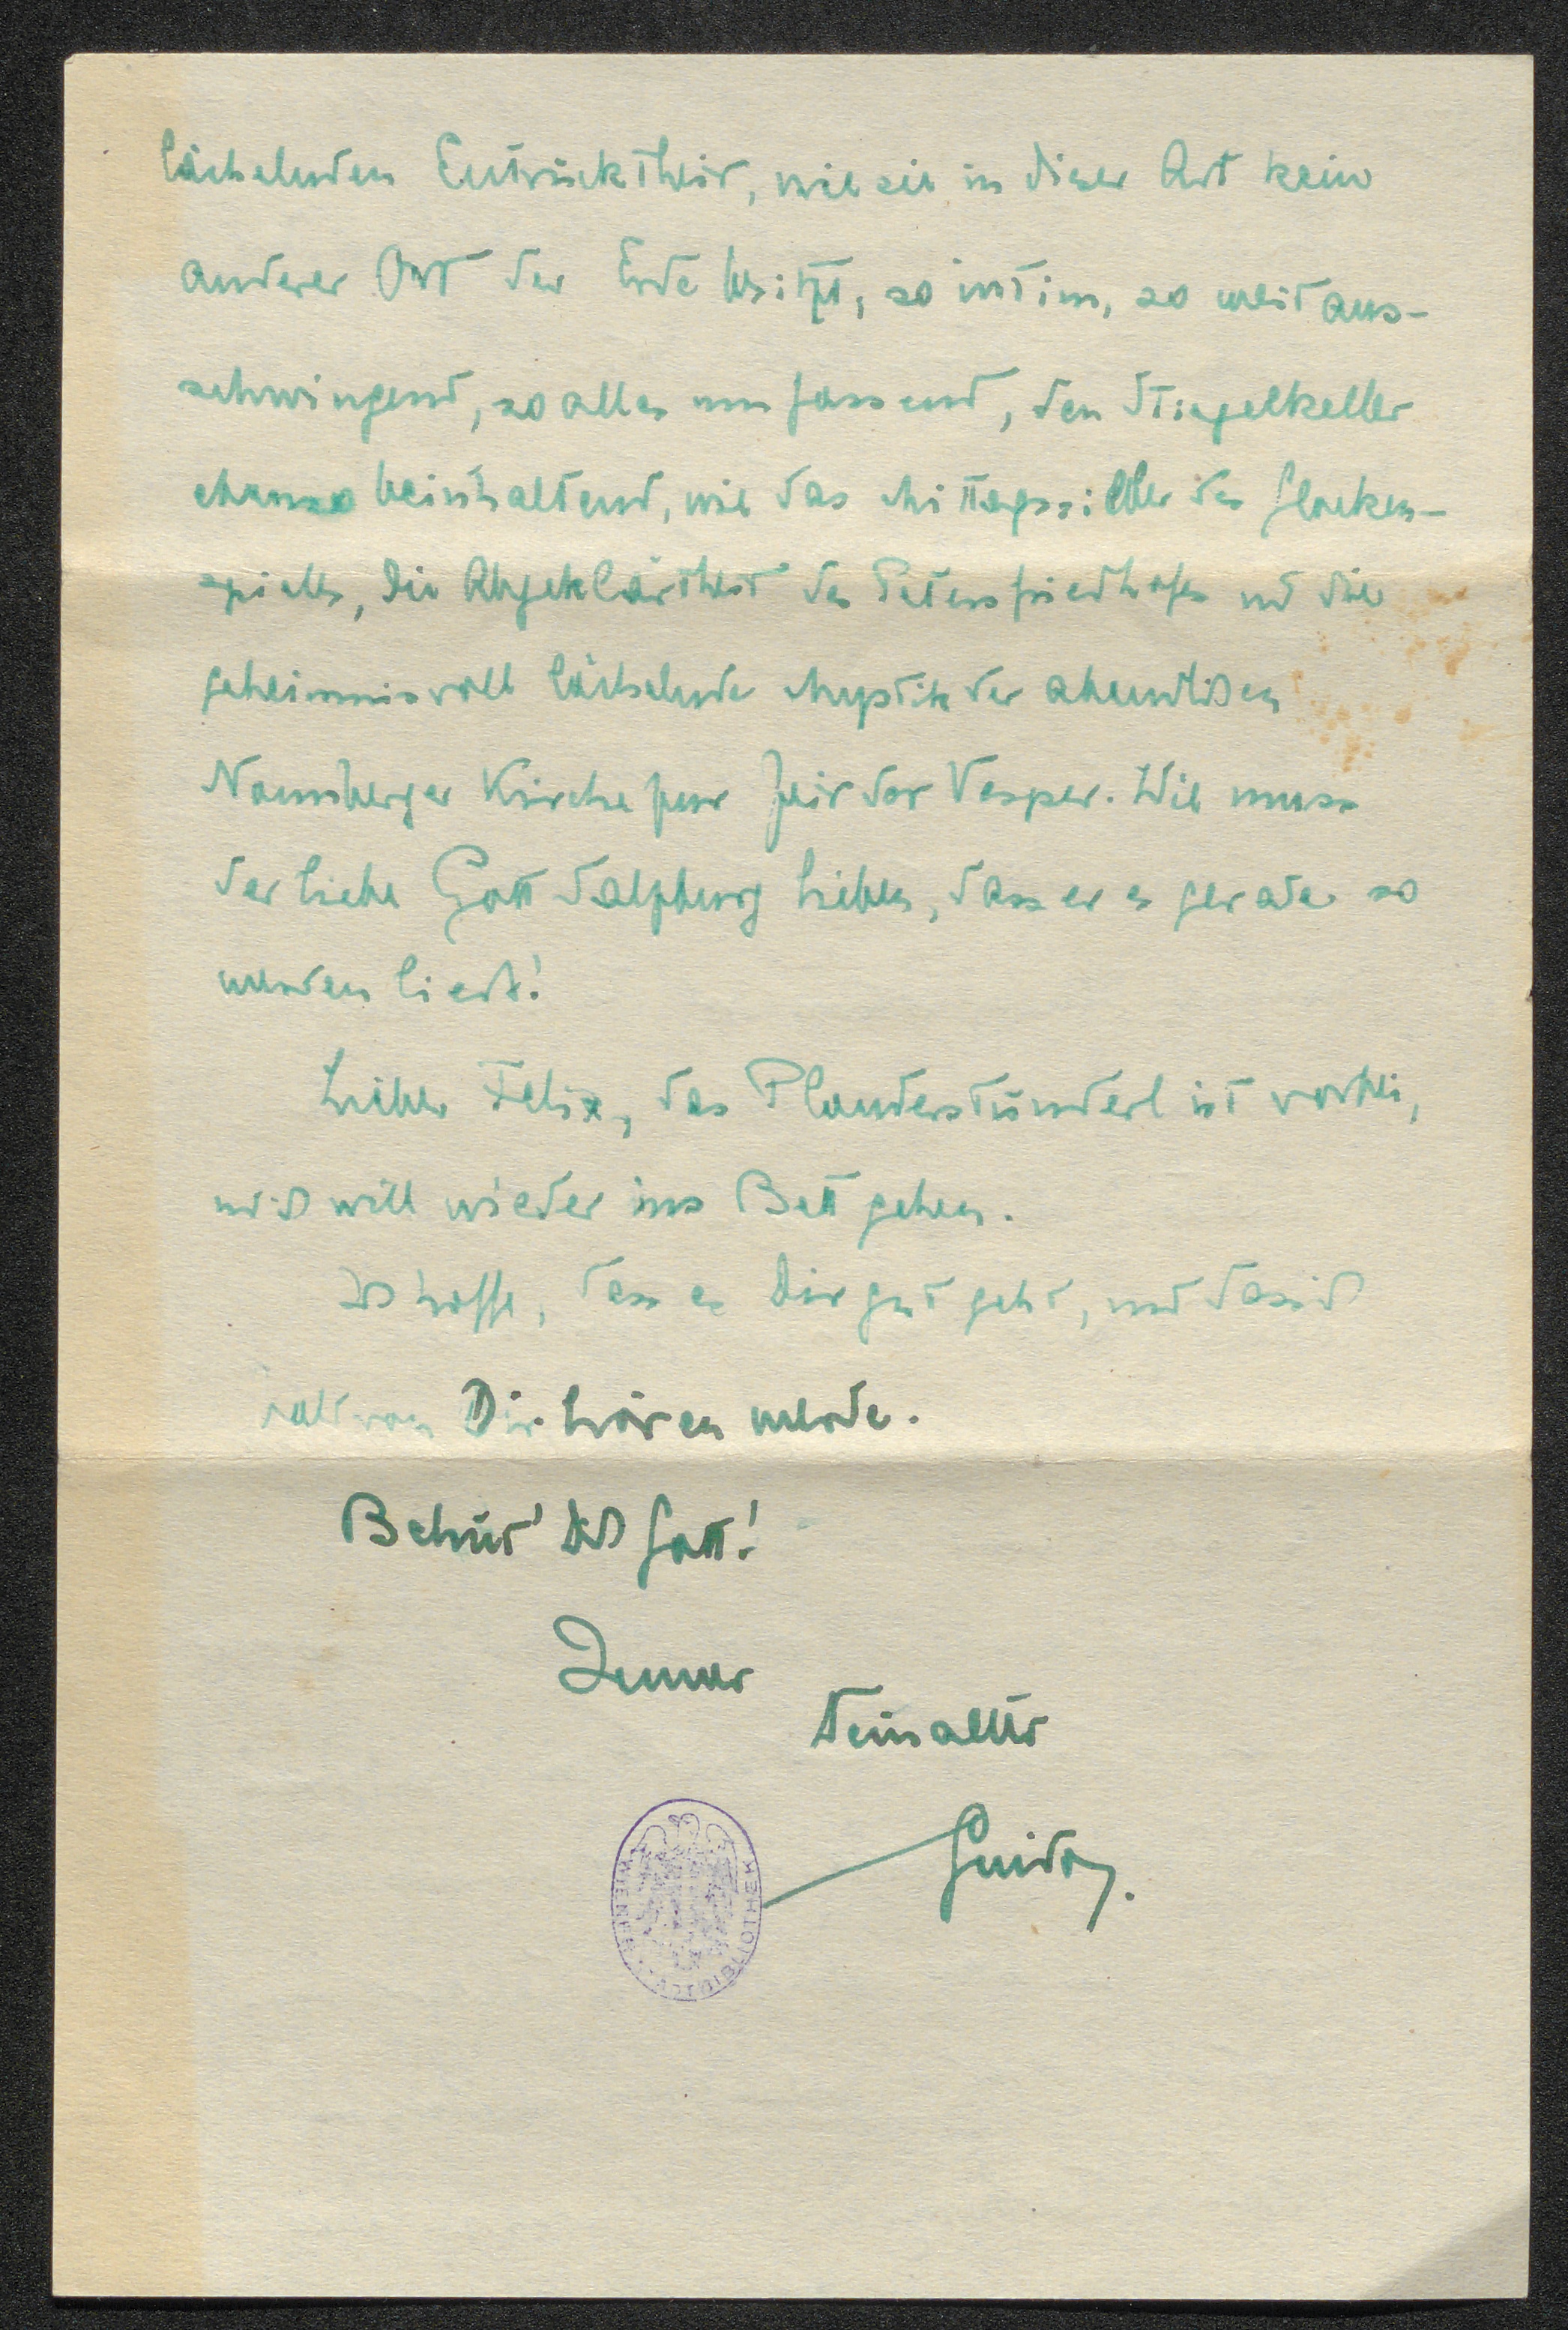 lächelnden Entrücktheit, wie sie in dieser Art kein
anderer Ort der Erde besitzt, so intim, so weit aus-
schwingend, so alles umfassend, den Stieglkeller
ebenso beinhaltend, wie das Mittagssilber des Glocken-
spieles, die Abgeklärtheit des Petersfriedhofes und die
geheimnisvoll lächelnde Mystik der abendlichen
Nonnberger Kirche zur Zeit der Vesper. Wie muss
der liebe Gott Salzburg lieben, dass er es gerade so
werden liess!
Lieber Felix, das Plauderstünderl ist vorbei,
und ich will wieder ins Bett gehen.
Ich hoffe, dass es Dir gut geht, und dass ich
bald von Dir hören werde.
Behüt' Dich Gott!
Immer
Dein alter
Guido.
WIENER STADTBIBLIOTHEK